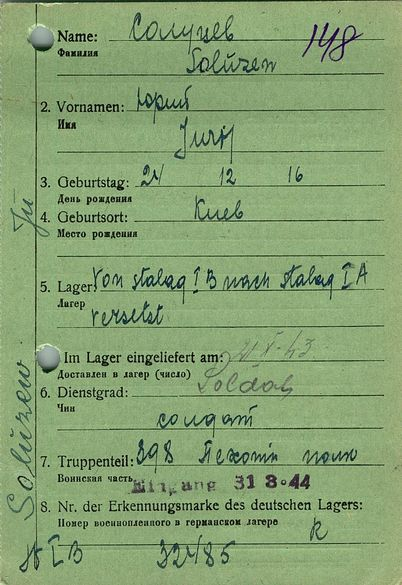 Name: Солуцев
Фамилия
148
Solüzew
2. Vornamen: Юрий
Имя
Jurij
3. Geburtstag: 24 12 16
День рождения
4. Geburtsort: Киев
Место рождения
5. Lager: Von Stalag I B nach Stalag I A
Лагер
versetzt
Im Lager eingeliefert am: X 43
Доставлен в лагер (число)
6. Dienstgrad: Soldat
Чин
солдат
7. Truppenteil: 398 Пехотн полк
Воинская часть
Eingang 31 3.44
8. Nr. der Erkennungsmarke des deutschen Lagers:
Номер военнопленного в германском лагере
I B 32485
Solüzew Ju